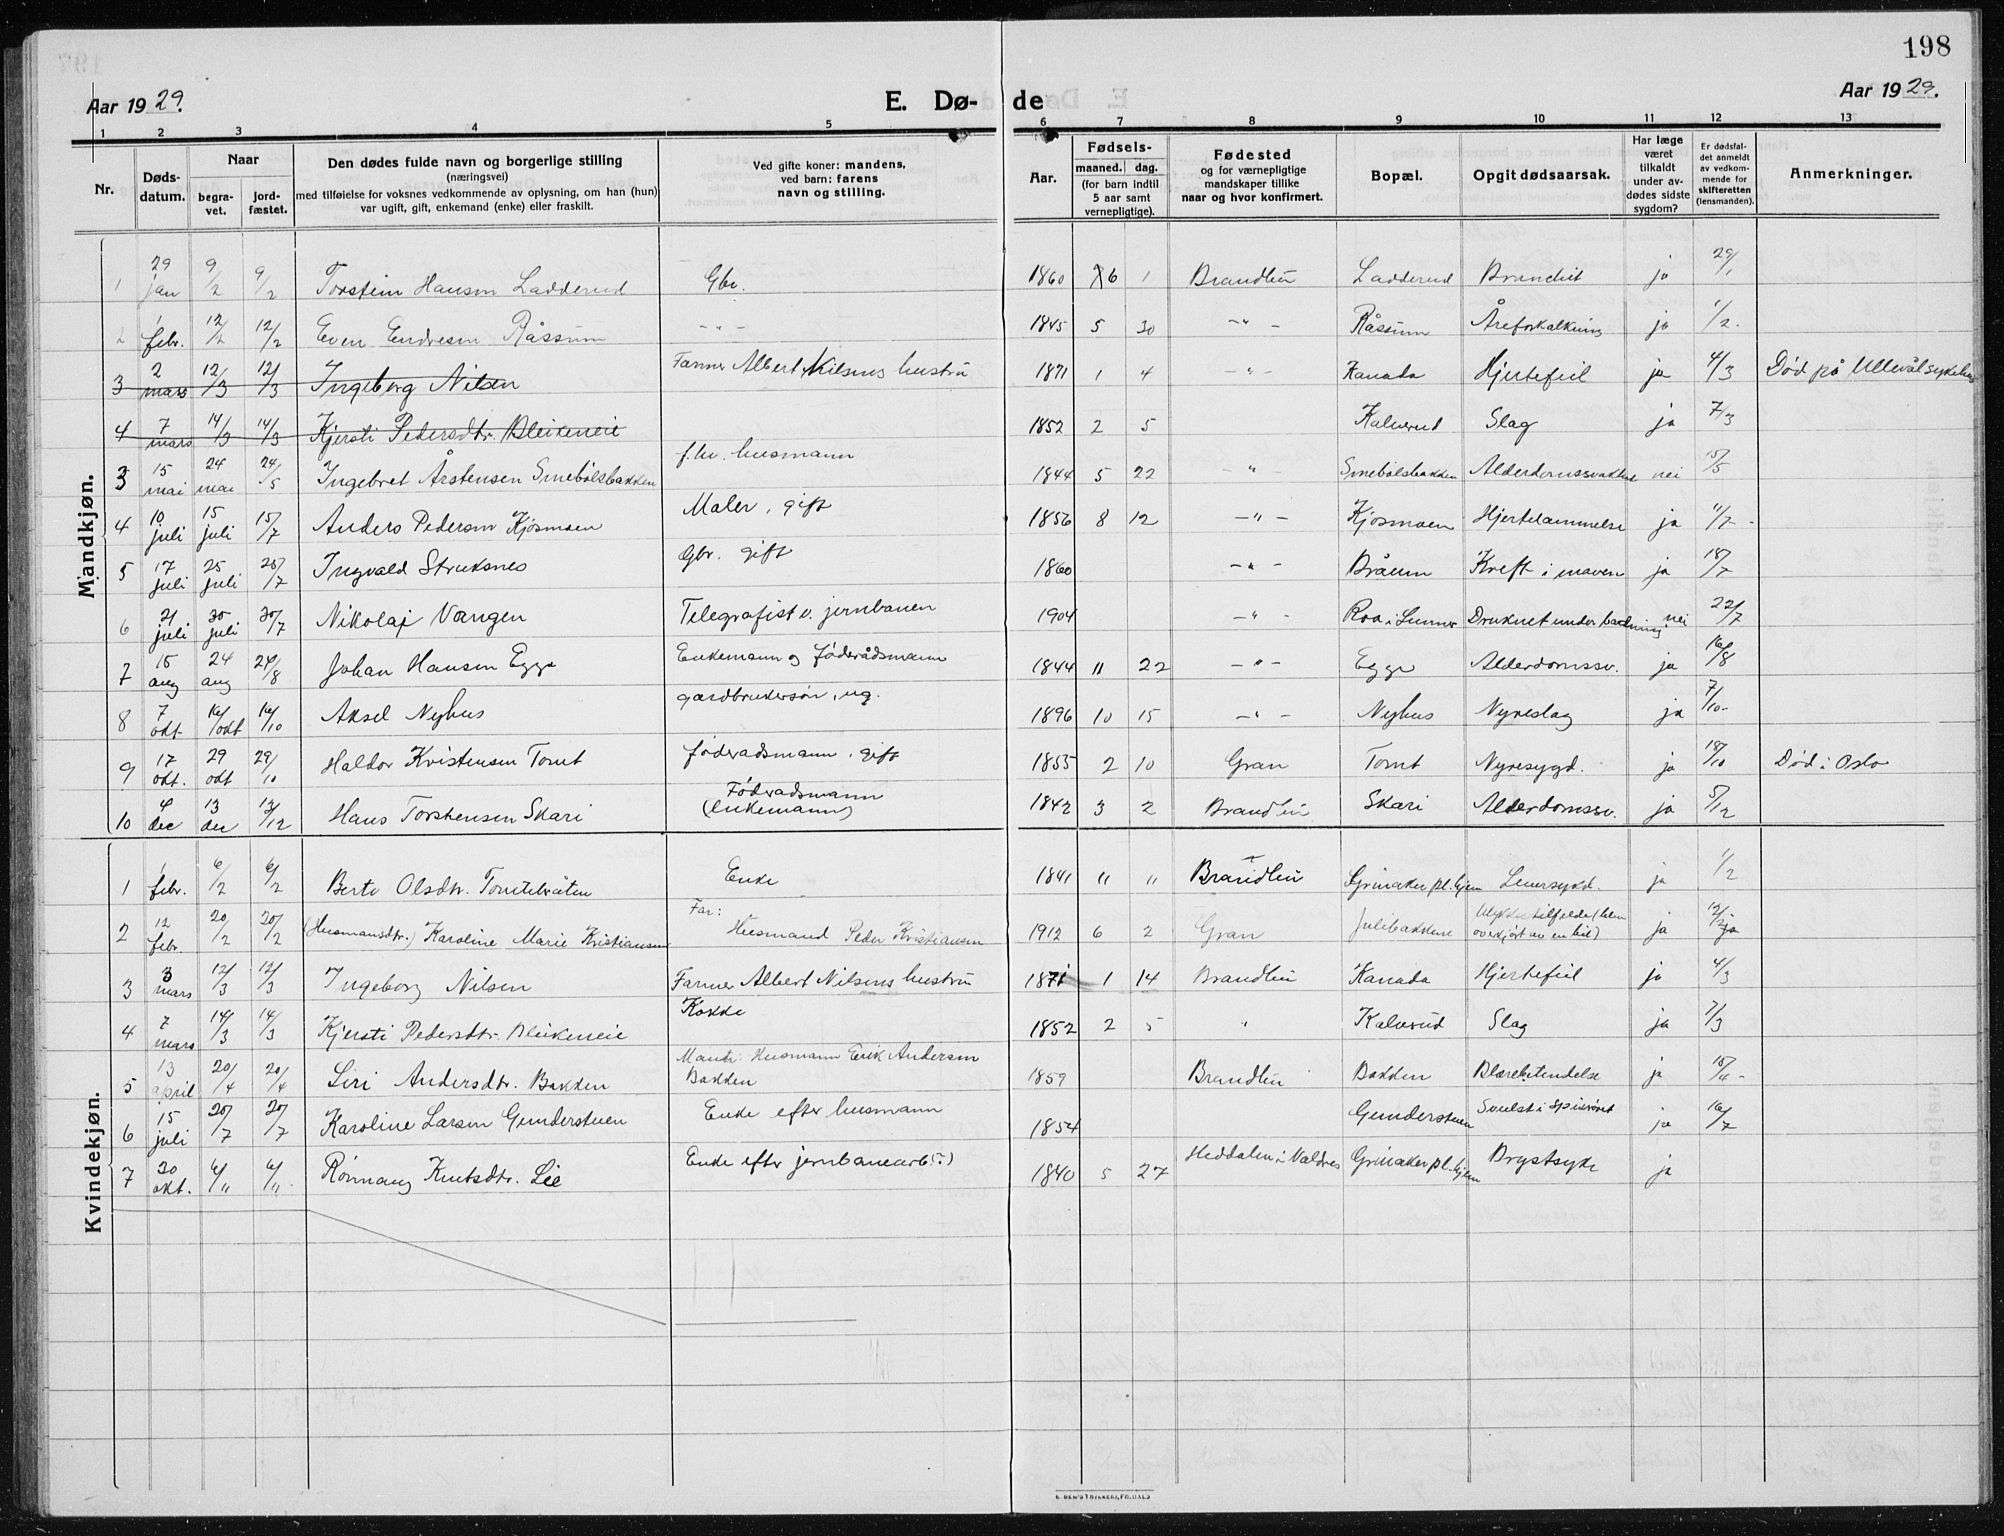 198
Aar 1929.
E. Dø-
de
Aar 1929.
1 2 3 4 5 6 7 8 9 10 11 12 13
Nr.
Døds-
datum.
Naar
begra-
vet.
jord-
fæstet.
Den dødes fulde navn og borgerlige stilling
(næringsvei)
med tilføielse for voksnes vedkommende av oplysning, om han (hun)
var ugift, gift, enkemand (enke) eller fraskilt.
Ved gifte koner: mandens,
ved barn: farens
navn og stilling.
Aar.
Fødsels-
maaned. dag.
(for barn indtil
5 aar samt
vernepligtige).
Fødested
og for værnepligtige
mandskaper tillike
naar og hvor konfirmert.
Bopæl.
Opgit dødsaarsak.
Har læge
været
tilkaldt
under av-
dødes sidste
sygdom?
Er dødsfal-
det anmeldt
av vedkom-
mende for
skifteretten
(lensmanden).
Anmerkninger.
Mandkjøn.
1 29 jan 9/2 9/2 Torstein Hansen Ladderud Gbr. 1860 6 1 Brandbu Ladderud Bronchit ja 29/1
2 1 febr. 12/2 12/2 Even Endresen Råssum -"- 1845 5 30 -"- Råssum Åreforkalkning ja 1/2.
3 2 mars 12/3 12/3 Ingeborg Nilsen Farmer Albert Nilsens hustru 1871 1 4 -"- Kanada Hjertefeil ja 4/3 Død på Ullevål sykehus
4 7 mars 14/3 14/3 Kjersti Pedersdtr. Bleikeneie 1852 2 5 Kalverud Slag ja 7/3
3 15 mai 24 mai 24/5 Ingebret Årstensen Smebølsbakken f.hv. husmann 1844 5 22 -"- Smebølsbakken Alderdomssvakhet nei 15/5
4 10 juli 15 juli 15/7 Anders Pedersen Kjosmoen Maler, gift 1856 8 12 -"- Kjosmoen Hjertelammelse ja 11/7 -
5 17 juli 25 juli 25/7 Ingvald Struksnes Gbr. gift 1860 -"- Bråum Kreft i maven ja 18/7
6 21 juli 30 juli 30/7 Nikolaj Vangen Telegrafist v. jernbanen 1904 -"- Roa i Lunner Druknet under badning nei 22/7
7 15 aug 24 aug 24/8 Johan Hansen Egge Enkemann og føderådsmann 1844 11 22 -"- Egge Alderdomssv. ja 16/8
8 7 okt. 16/okt 16/10 Aksel Nyhus gardbrukersøn, ug. 1896 10 15 -"- Nyhus Nyreslag ja 7/10-
9 17 okt. 29 okt 29/10 Haldor Kristensen Tomt føderadsmann, gift 1855 2 10 Gran Tomt Nyresygd. ja 18/10 Død i Oslo
10 4 dec 13 dec 13/12 Hans Torstensen Skari Føderadsmann
(enkemann) 1842 3 2 Brandbu Skari Alderdomssv. ja 5/12
Kvindekjøn.
1 1 febr. 6/2 6/2 Berte Olsdtr. Tomtebråten Enke 1841 11 11 Brandbu Grinaker pl.hjem Leversykd. ja 1/2
2 12 febr. 20/2 20/2 (Husmansdtr.) Karoline Marie Kristiansen Far:
Husmand Peder Kristiansen 1912 6 2 Gran Julibakkene Ulykkestilfelde (blev
overkjørt av en bil) ja 12/2 ja
3 3 mars 12/3 12/3 Ingeborg Nilsen Farmer Albert Nilsens hustru 1871 1 14 Brandbu Kanada Hjertefeil ja 4/3
4 7 mars 14/3 14/3 Kjersti Pedersdtr. Bleikeneie Kokke 1852 2 5 " Kalverud Slag ja 7/3
5 13 april 20/4 20/4 Siri Andersdtr. Bakken Mand: Husmann Erik Andersen
Bakken 1859 Brandbu Bakken Blærebetendelse ja 15/4 -
6 15 juli 20/7 20/7 Karoline Larsen Gunderstuen Enke efter husmann 1854 Gunderstuen Svulst i spiserøret ja 16/7
7 20 okt. 6/11 6/11. Rønnaug Knutsdtr. Lie Enke efter jernbanearb.(?) 1840 5 27 Heddalen i Valdres Grinaker pl.hjem Brystsyke ja